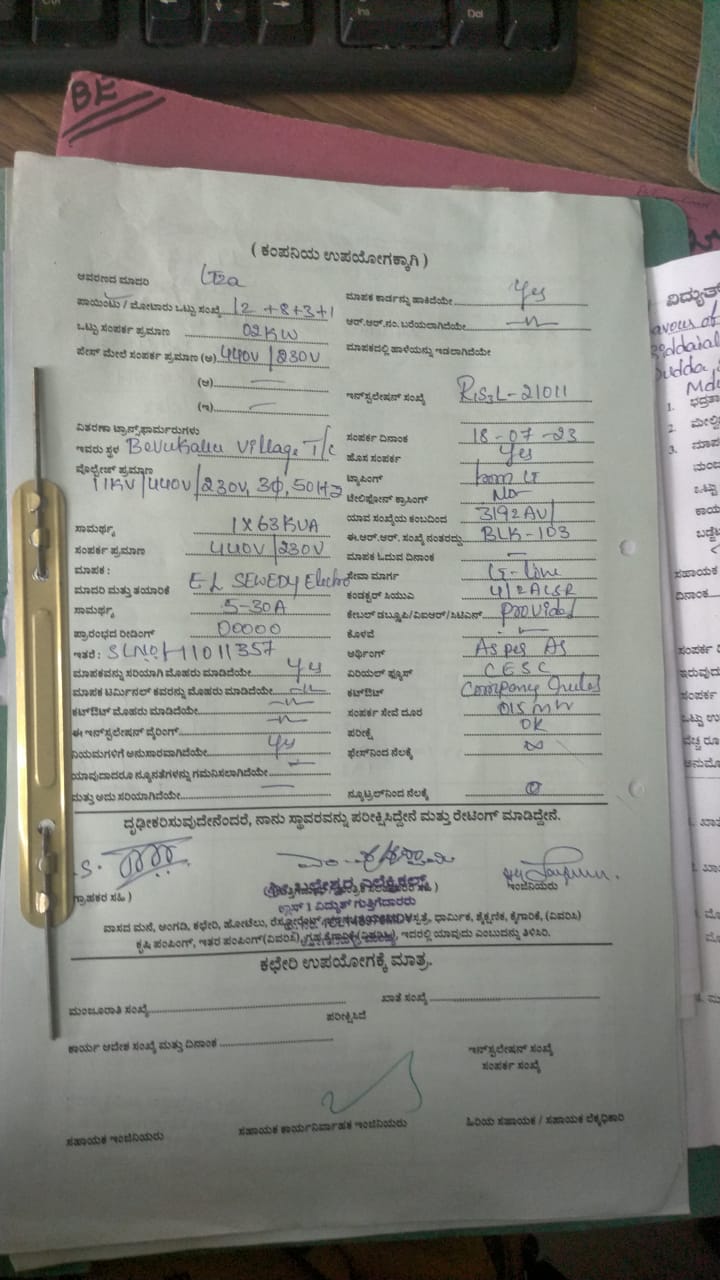 Ins
Del
BE
( ಕಂಪನಿಯ ಉಪಯೋಗಕ್ಕಾಗಿ )
ಆವರಣದ ಮಾದರಿ
ಮಾಪಕ ಕಾರ್ಡನ್ನು ಹಾಕಿದೆಯೇ Yes
ಪಾಯಿಂಟು / ಮೋಟಾರು ಒಟ್ಟು ಸಂಖ್ಯೆ 12 +8+3+1
ಆರ್.ಆರ್.ನಂ. ಬರೆಯಲಾಗಿದೆಯೇ —"—
ಒಟ್ಟು ಸಂಪರ್ಕ ಪ್ರಮಾಣ 02KW
ಮಾಪಕದಲ್ಲಿ ಹಾಳೆಯನ್ನು ಇಡಲಾಗಿದೆಯೇ
ಫೇಸ್ ಮೇಲೆ ಸಂಪರ್ಕ ಪ್ರಮಾಣ (ಅ) 440V/230V
(ಆ) —
(ಇ) —
ಇನ್‌ಸ್ಟಲೇಷನ್ ಸಂಖ್ಯೆ L-21011
ವಿತರಣಾ ಟ್ರಾನ್ಸ್‌ಫಾರ್ಮರುಗಳು
ಇವರು ಸ್ಥಳ Bevukallu Village T/c
ಸಂಪರ್ಕ ದಿನಾಂಕ 18-07-23
ಹೊಸ ಸಂಪರ್ಕ Yes
ವೋಲ್ಟೇಜ್ ಪ್ರಮಾಣ 11KV/440V/230V, 3Φ, 50HZ
ಟ್ಯಾಪಿಂಗ್ from LT
ಟೆಲಿಫೋನ್ ಕ್ರಾಸಿಂಗ್ No
ಯಾವ ಸಂಖ್ಯೆಯ ಕಂಬದಿಂದ 3192AV/
ಸಾಮರ್ಥ್ಯ 1X63KVA
ಈ.ಆರ್.ಆರ್. ಸಂಖ್ಯೆ ನಂತರದ್ದು BLK-103
ಸಂಪರ್ಕ ಪ್ರಮಾಣ 440V/230V
ಮಾಪಕ ಓದುವ ದಿನಾಂಕ —
ಮಾಪಕ :
ಮಾದರಿ ಮತ್ತು ತಯಾರಿಕೆ EL SEWEDY Electro
ಸೇವಾ ಮಾರ್ಗ LT-Line
ಸಾಮರ್ಥ್ಯ 5-30A
ಕಂಡಕ್ಟರ್ ಸಿಯುಎ 4/2 ACSR
ಕೇಬಲ್ ಡಬ್ಲೂಪಿ/ವಿಐಆರ್/ಸಿಟಿಎಸ್ Provided
ಪ್ರಾರಂಭದ ರೀಡಿಂಗ್ 00000
ಕೊಳವೆ
ಇತರೆ : SLNO/11011357
ಅರ್ಥಿಂಗ್ As per AS
ಮಾಪಕವನ್ನು ಸರಿಯಾಗಿ ಮೊಹರು ಮಾಡಿದೆಯೇ Yes
ಏರಿಯಲ್ ಫ್ಯೂಸ್ CESC
ಮಾಪಕ ಟರ್ಮಿನಲ್ ಕವರನ್ನು ಮೊಹರು ಮಾಡಿದೆಯೇ —"—
ಕಟ್‌ಔಟ್ Company
ಕಟ್‌ಔಟ್ ಮೊಹರು ಮಾಡಿದೆಯೇ —"—
ಸಂಪರ್ಕ ಸೇವೆ ದೂರ
ಈ ಇನ್‌ಸ್ಟಲೇಷನ್ ವೈರಿಂಗ್ —"—
ಪರೀಕ್ಷೆ OK
ನಿಯಮಗಳಿಗೆ ಅನುಸಾರವಾಗಿದೆಯೇ Yes
ಫೇಸ್‌ನಿಂದ ನೆಲಕ್ಕೆ ∞
ಯಾವುದಾದರೂ ನ್ಯೂನತೆಗಳನ್ನು ಗಮನಿಸಲಾಗಿದೆಯೇ —
ಮತ್ತು ಅದು ಸರಿಯಾಗಿದೆಯೇ —
ನ್ಯೂಟ್ರಲ್‌ನಿಂದ ನೆಲಕ್ಕೆ
ದೃಢೀಕರಿಸುವುದೇನೆಂದರೆ, ನಾನು ಸ್ಥಾವರವನ್ನು ಪರೀಕ್ಷಿಸಿದ್ದೇನೆ ಮತ್ತು ರೇಟಿಂಗ್ ಮಾಡಿದ್ದೇನೆ.
ಗ್ರಾಹಕರ ಸಹಿ )
ಇಂಜಿನಿಯರು
ಕ್ಲಾಸ್ 1 ವಿದ್ಯುತ್ ಗುತ್ತಿಗೆದಾರರು
ವಾಸದ ಮನೆ, ಅಂಗಡಿ, ಕಛೇರಿ, ಹೋಟೆಲು, ಧಾರ್ಮಿಕ, ಶೈಕ್ಷಣಿಕ, ಕೈಗಾರಿಕೆ, (ವಿವರಿಸಿ)
ಕೃಷಿ ಪಂಪಿಂಗ್, ಇತರ ಪಂಪಿಂಗ್(ವಿವರಿಸಿ), ಇದರಲ್ಲಿ ಯಾವುದು ಎಂಬುದನ್ನು ತಿಳಿಸಿರಿ.
ಕಛೇರಿ ಉಪಯೋಗಕ್ಕೆ ಮಾತ್ರ.
ಮಂಜೂರಾತಿ ಸಂಖ್ಯೆ
ಖಾತೆ ಸಂಖ್ಯೆ
ಪರೀಕ್ಷಿಸಿದೆ
ಕಾರ್ಯ ಆದೇಶ ಸಂಖ್ಯೆ ಮತ್ತು ದಿನಾಂಕ
ಇನ್‌ಸ್ಟಲೇಷನ್ ಸಂಖ್ಯೆ
ಸಂಪರ್ಕ ಸಂಖ್ಯೆ
ಸಹಾಯಕ ಇಂಜಿನಿಯರು
ಸಹಾಯಕ ಕಾರ್ಯನಿರ್ವಾಹಕ ಇಂಜಿನಿಯರು
ಹಿರಿಯ ಸಹಾಯಕ / ಸಹಾಯಕ ಲೆಕ್ಕಾಧಿಕಾರಿ
ವಿದ್ಯುತ್